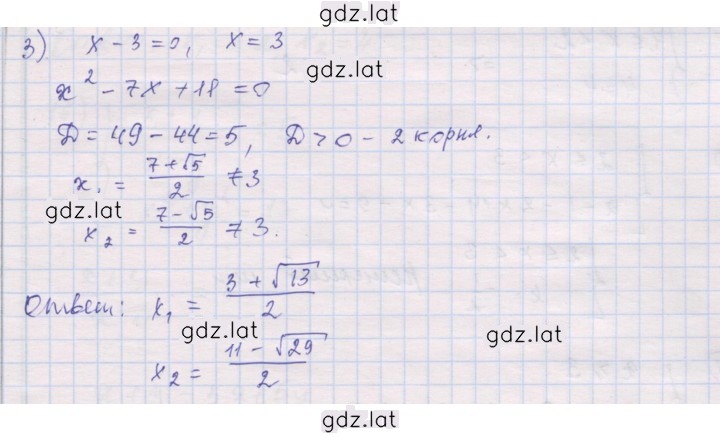 gdz.lat
3) x - 3 = 0, x = 3
gdz.lat
x² - 7x + 11 = 0
D = 49 - 44 = 5, D > 0 - 2 корня.
x₁ = (7 + √5)/2 ≠ 3
gdz.lat
x₂ = (7 - √5)/2 ≠ 3.
Ответ: x₁ = (3 + √13)/2
gdz.lat gdz.lat
x₂ = (11 - √29)/2
gdz.lat